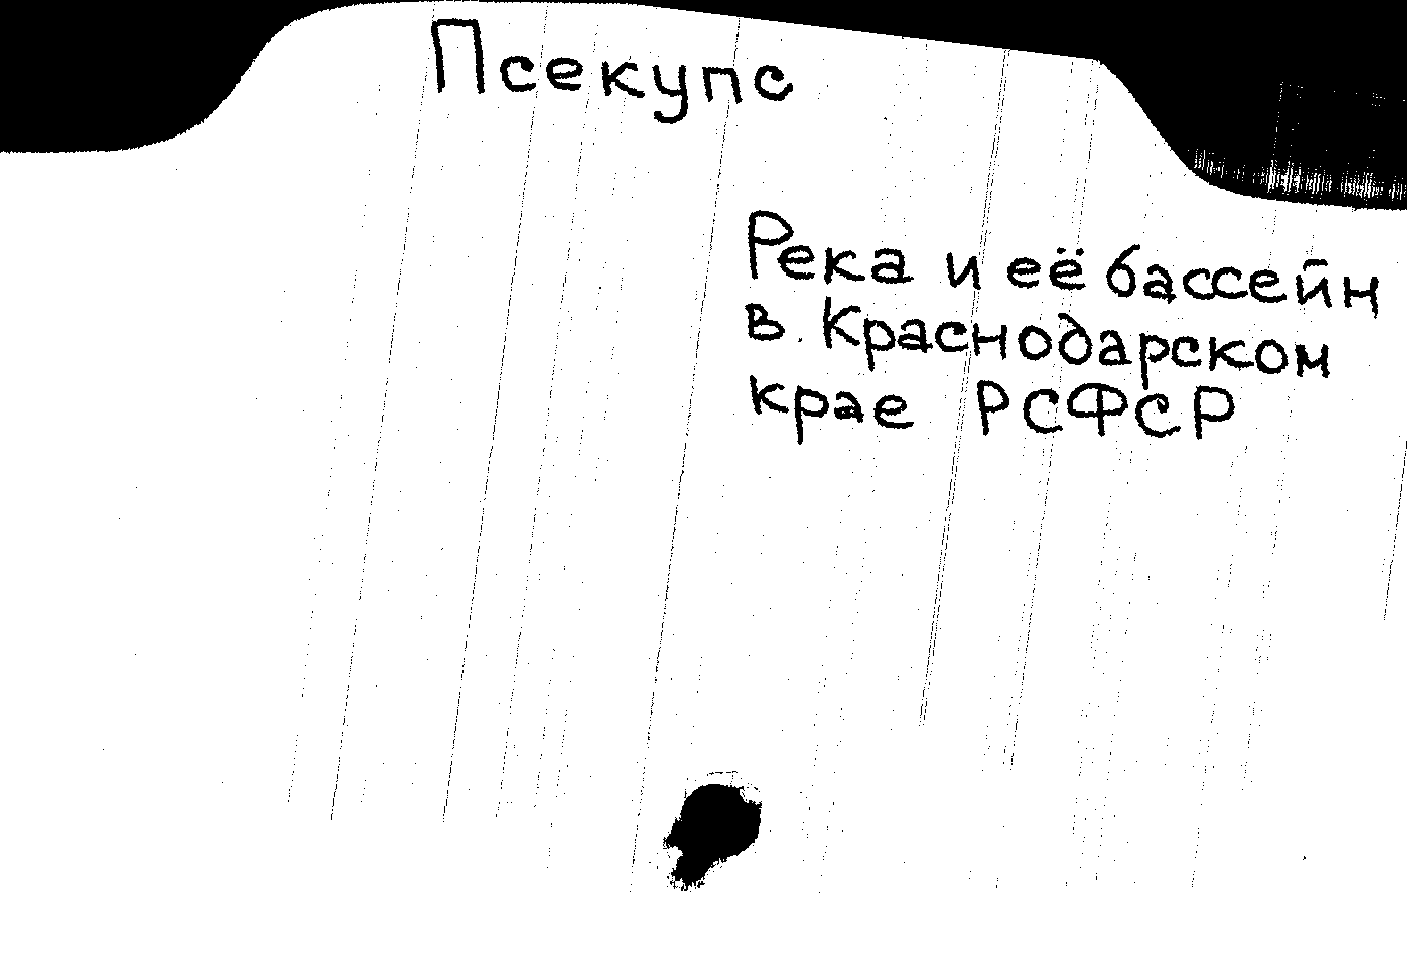 Псекупс
Река и её бассейн
в Краснодарском
крае РСФСР